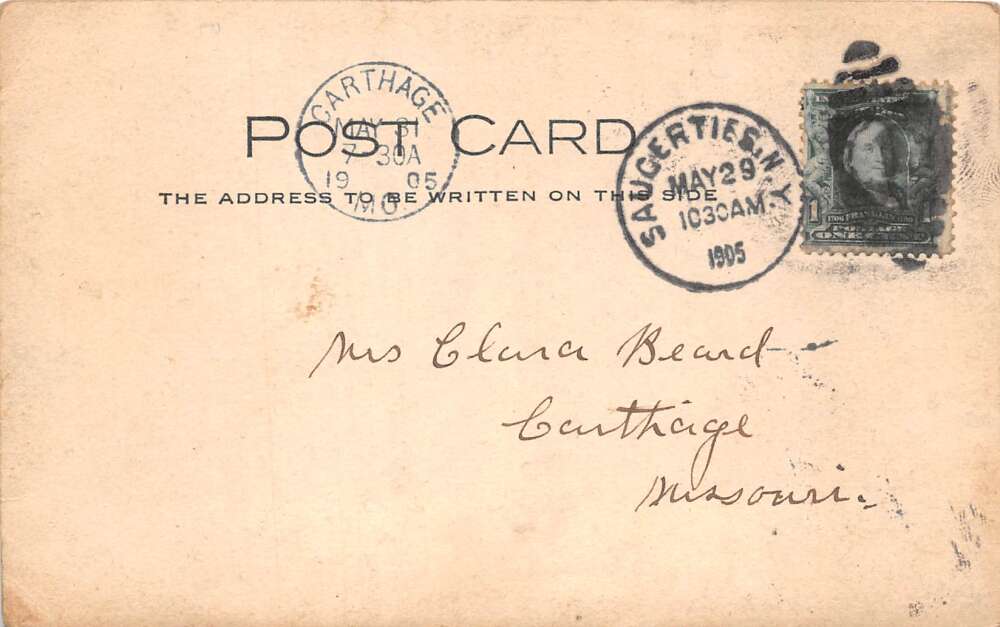 POST CARD
THE ADDRESS TO BE WRITTEN ON THIS SIDE
CARTHAGE
MAY 31
7-30A
19 05
MO.
SAUGERTIES, N.Y.
MAY 29
1030AM
1905
1 FRANKLIN
POSTAGE
Mrs Clara Beard
Carthage
Missouri.